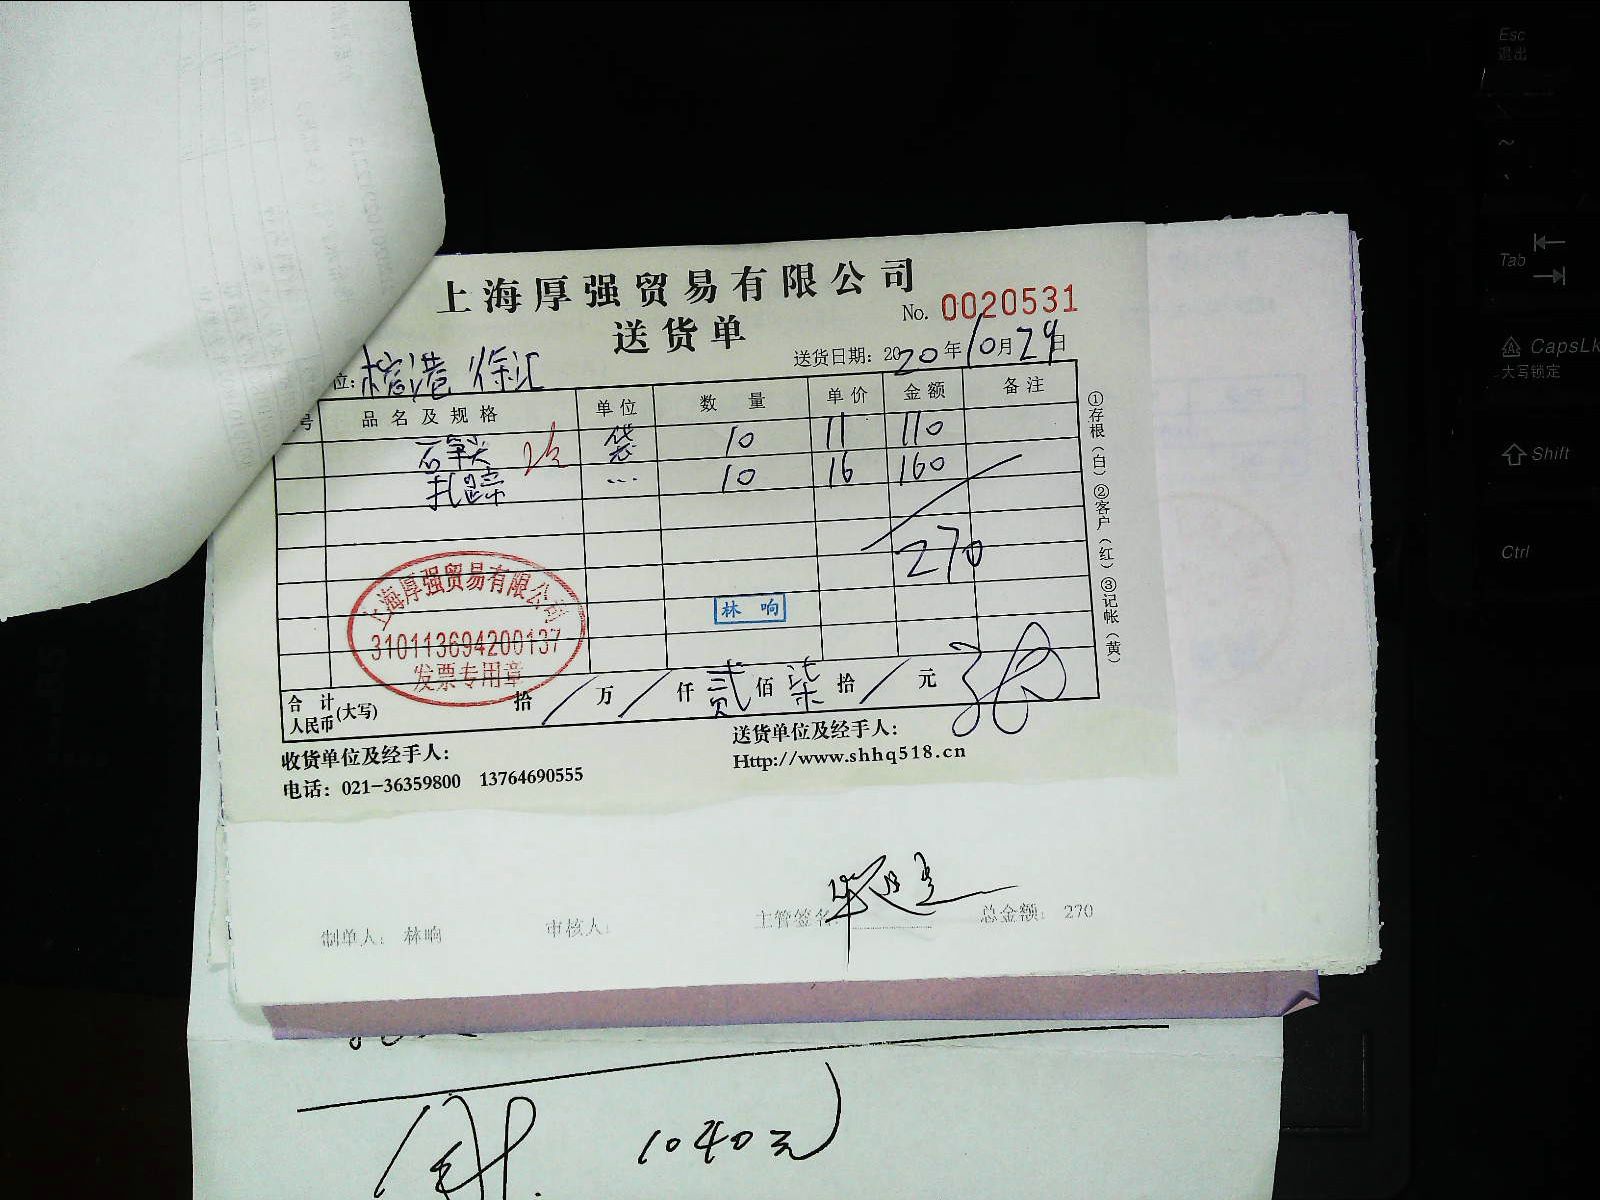 上海厚强贸易有限公司
送货单
No. 0020531
送货日期：2020年10月29日
位：桂港 徐汇
号 品名及规格 单位 数量 单价 金额 备注
石笋尖 袋 10 11 110
扎蹄 … 10 16 160
270
上海厚强贸易有限公司
310113694200137
发票专用章
林响
合计人民币(大写) 拾 / 万 / 仟 贰 佰 柒 拾 / 元
①存根（白）②客户（红）③记帐（黄）
收货单位及经手人：
送货单位及经手人：
电话：021-36359800 13764690555
Http://www.shhq518.cn
制单人： 林响 审核人： 主管签名： 总金额： 270
1040元
Esc
退出
~
Tab
CapsLk
大写锁定
Shift
Ctrl